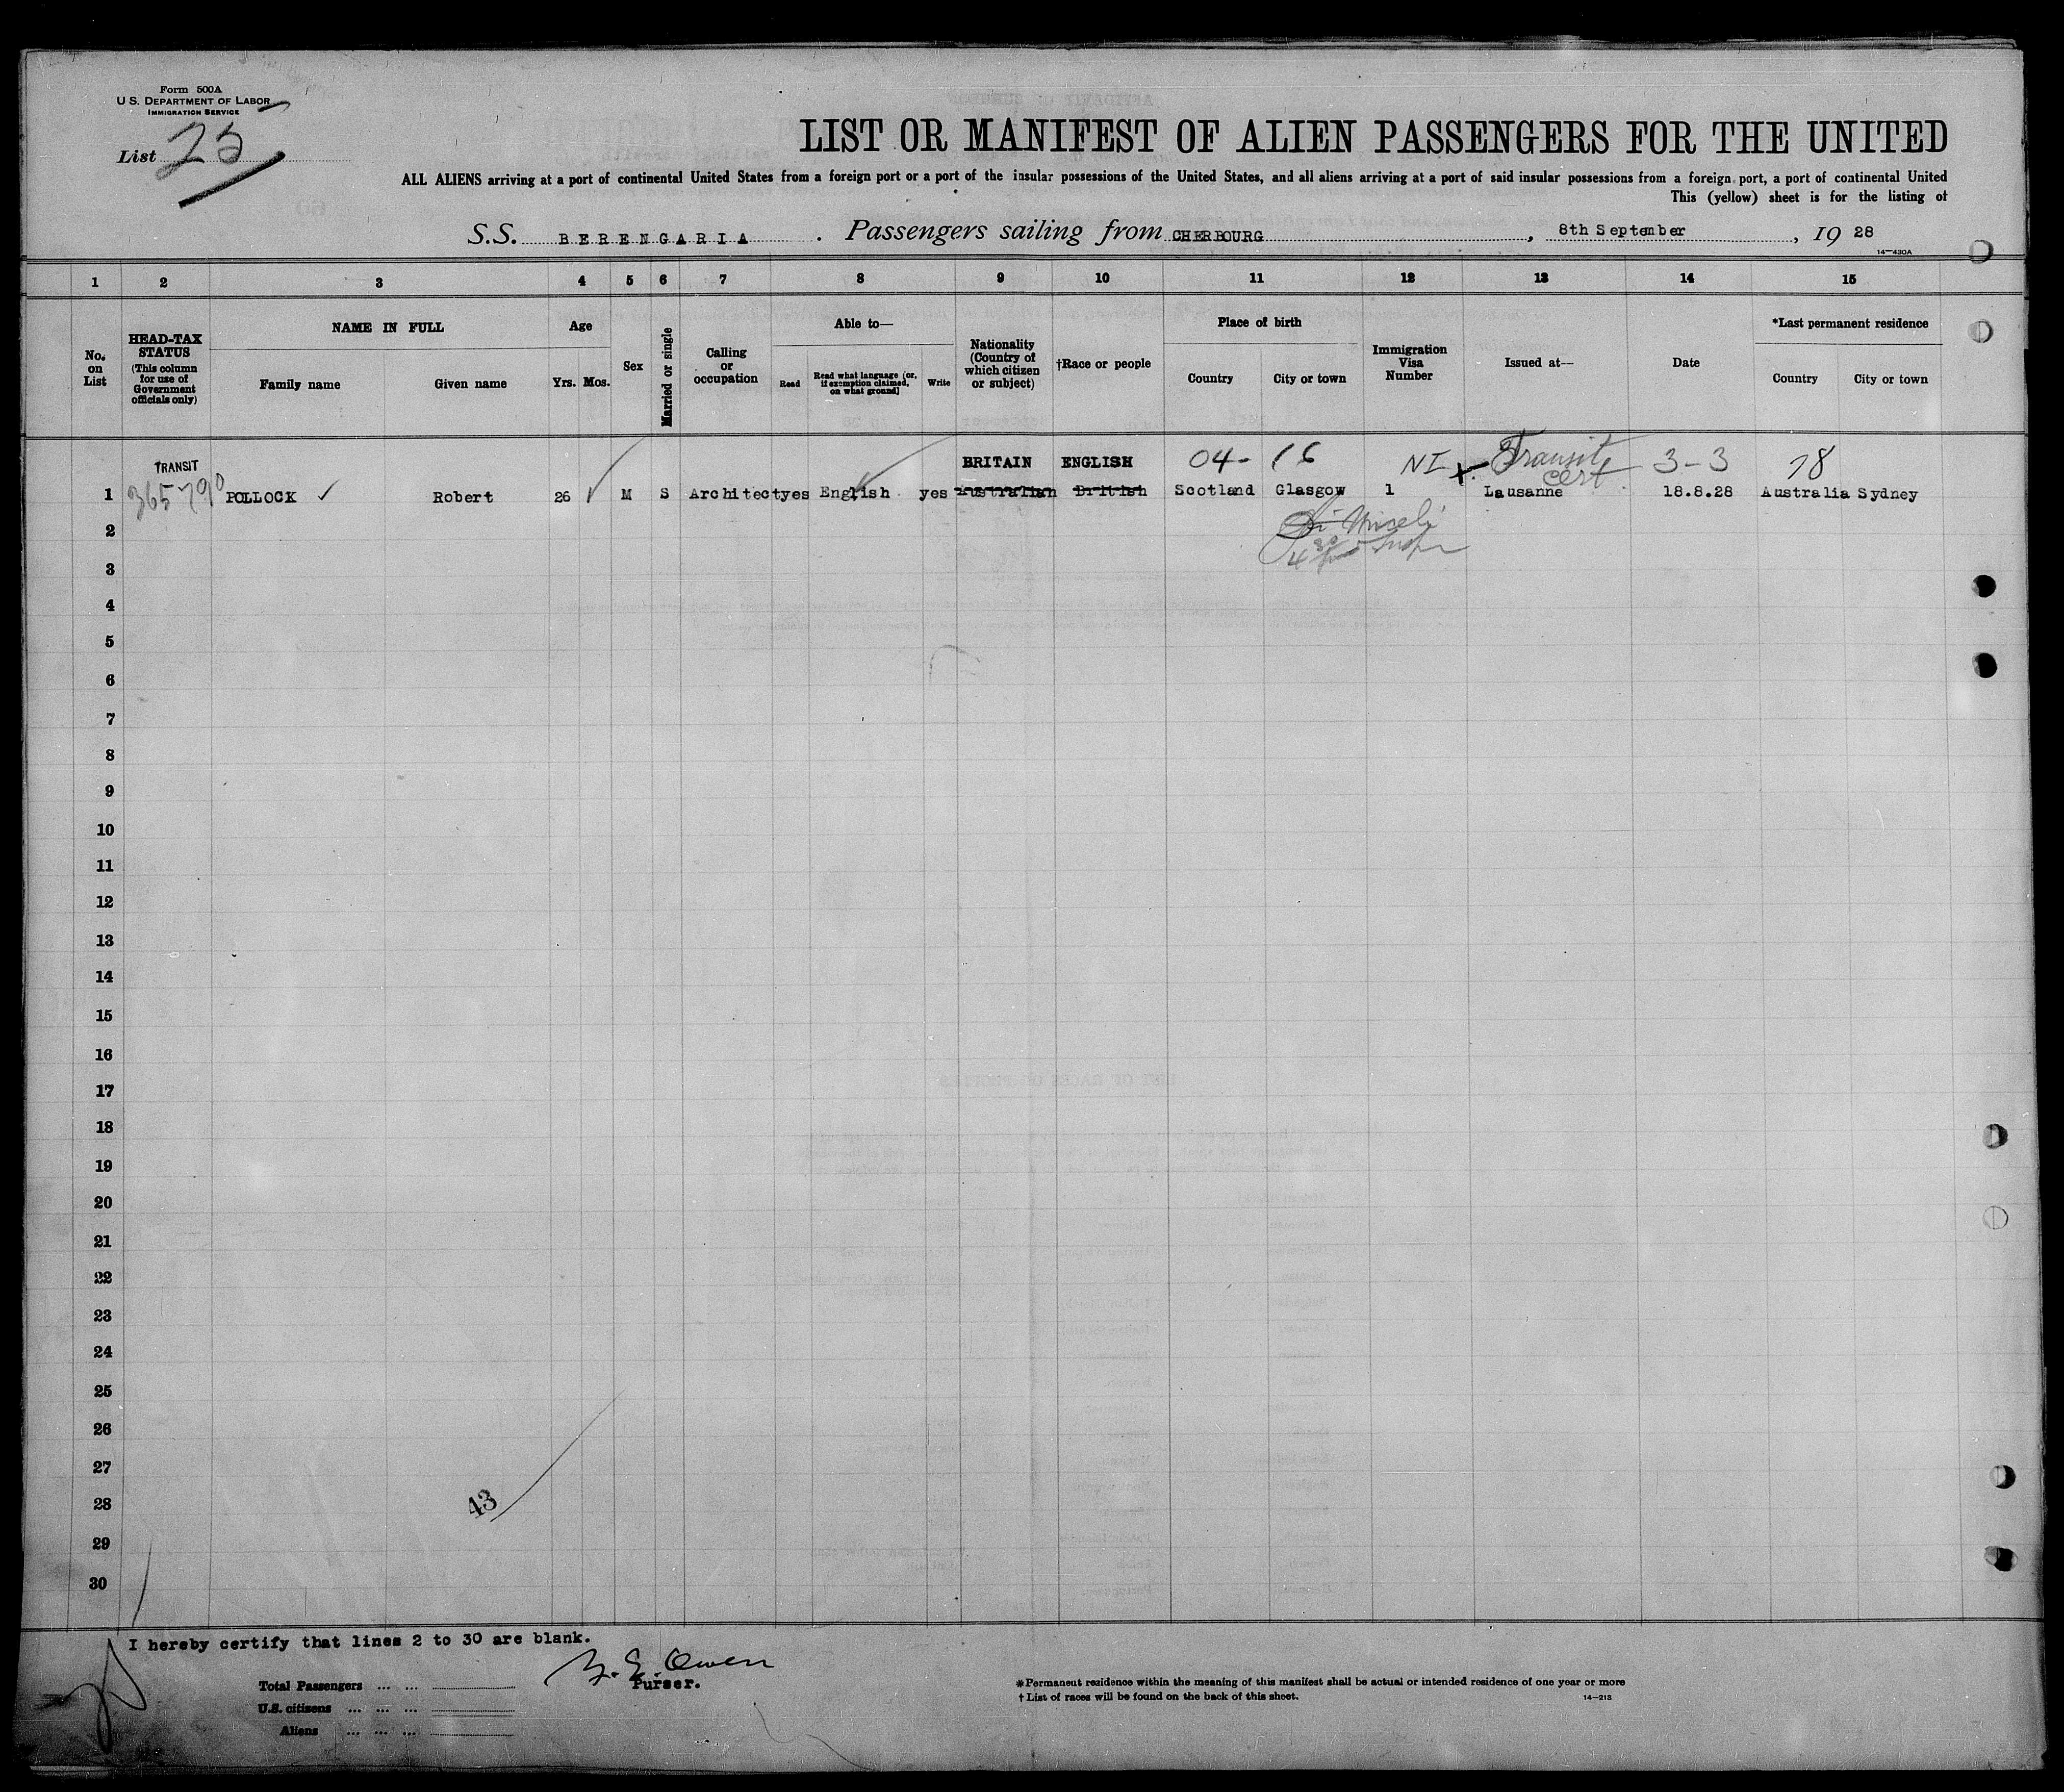 Form 500A
U.S. DEPARTMENT OF LABOR
IMMIGRATION SERVICE
List 25
LIST OR MANIFEST OF ALIEN PASSENGERS FOR THE UNITED
ALL ALIENS arriving at a port of continental United States from a foreign port or a port of the insular possessions of the United States, and all aliens arriving at a port of said insular possessions from a foreign port, a port of continental United
This (yellow) sheet is for the listing of
S.S. BERENGARIA. Passengers sailing from CHERBOURG, 8th September, 19 28
14—430A
1 2 3 4 5 6 7 8 9 10 11 12 13 14 15
No. on List
HEAD-TAX STATUS (This column for use of Government officials only)
NAME IN FULL
Family name Given name
Age
Yrs. Mos.
Sex
Married or single
Calling or occupation
Able to—
Read
Read what language [or, if exemption claimed, on what ground]
Write
Nationality (Country of which citizen or subject)
†Race or people
Place of birth
Country City or town
Immigration Visa Number
Issued at—
Date
*Last permanent residence
Country City or town
TRANSIT BRITAIN ENGLISH 04- 16 NI x Transit cert 3-3 78
1 365790 POLLOCK ✓ Robert 26 ✓ M S Architect yes English yes Australian British Scotland Glasgow 1 Lausanne 18.8.28 Australia Sydney
2
3
4
5
6
7
8
9
10
11
12
13
14
15
16
17
18
19
20
21
22
23
24
25
26
27
28
29
30
43
I hereby certify that lines 2 to 30 are blank.
Owen
Purser.
Total Passengers ... ...
U.S. citizens ... ... ...
Aliens ... ... ...
*Permanent residence within the meaning of this manifest shall be actual or intended residence of one year or more
†List of races will be found on the back of this sheet.
14—213